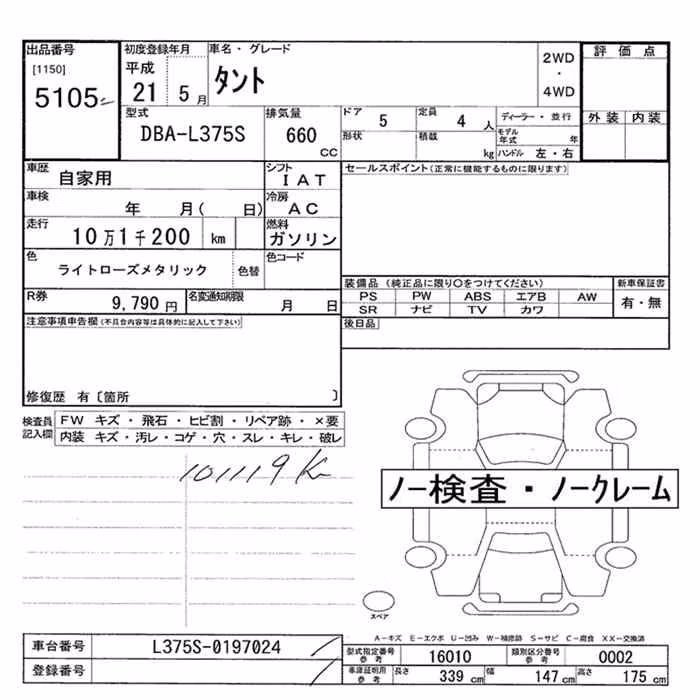 出品番号
[1150]
5105
初度登録年月
平成
21 5 月
車名・グレード
タント
2WD
・
4WD
評価点
外装 内装
型式
DBA-L375S
排気量
660
CC
ドア 5
定員 4 人
ディーラー・並行
形状
積載 kg
モデル年式 年
ハンドル 左・右
車歴
自家用
シフト
IAT
セールスポイント(正常に機能するものに限ります)
車検
年 月( 日)
冷房
AC
走行
10万1千200 km
燃料
ガソリン
色
ライトローズメタリック
色替
色コード
装備品 (純正品に限り○をつけてください)
新車保証書
PS PW ABS エアB AW
有・無
SR ナビ TV カワ
R券
9,790 円
名変通知期限
月 日
後日品
注意事項申告欄(不具合内容等は具体的に記入して下さい)
修復歴 有〔箇所 〕
検査員
記入欄
FW キズ・飛石・ヒビ割・リペア跡・×要
内装 キズ・汚レ・コゲ・穴・スレ・キレ・破レ
101119K
ノー検査・ノークレーム
スペア
A-キズ E-エクボ U-凹み W-補修跡 S-サビ C-腐食 XX-交換済
車台番号
L375S-0197024
登録番号
型式指定番号
参考
16010
類別区分番号
参考
0002
車庫証明用
参考
長さ 339 cm
幅 147 cm
高さ 175 cm